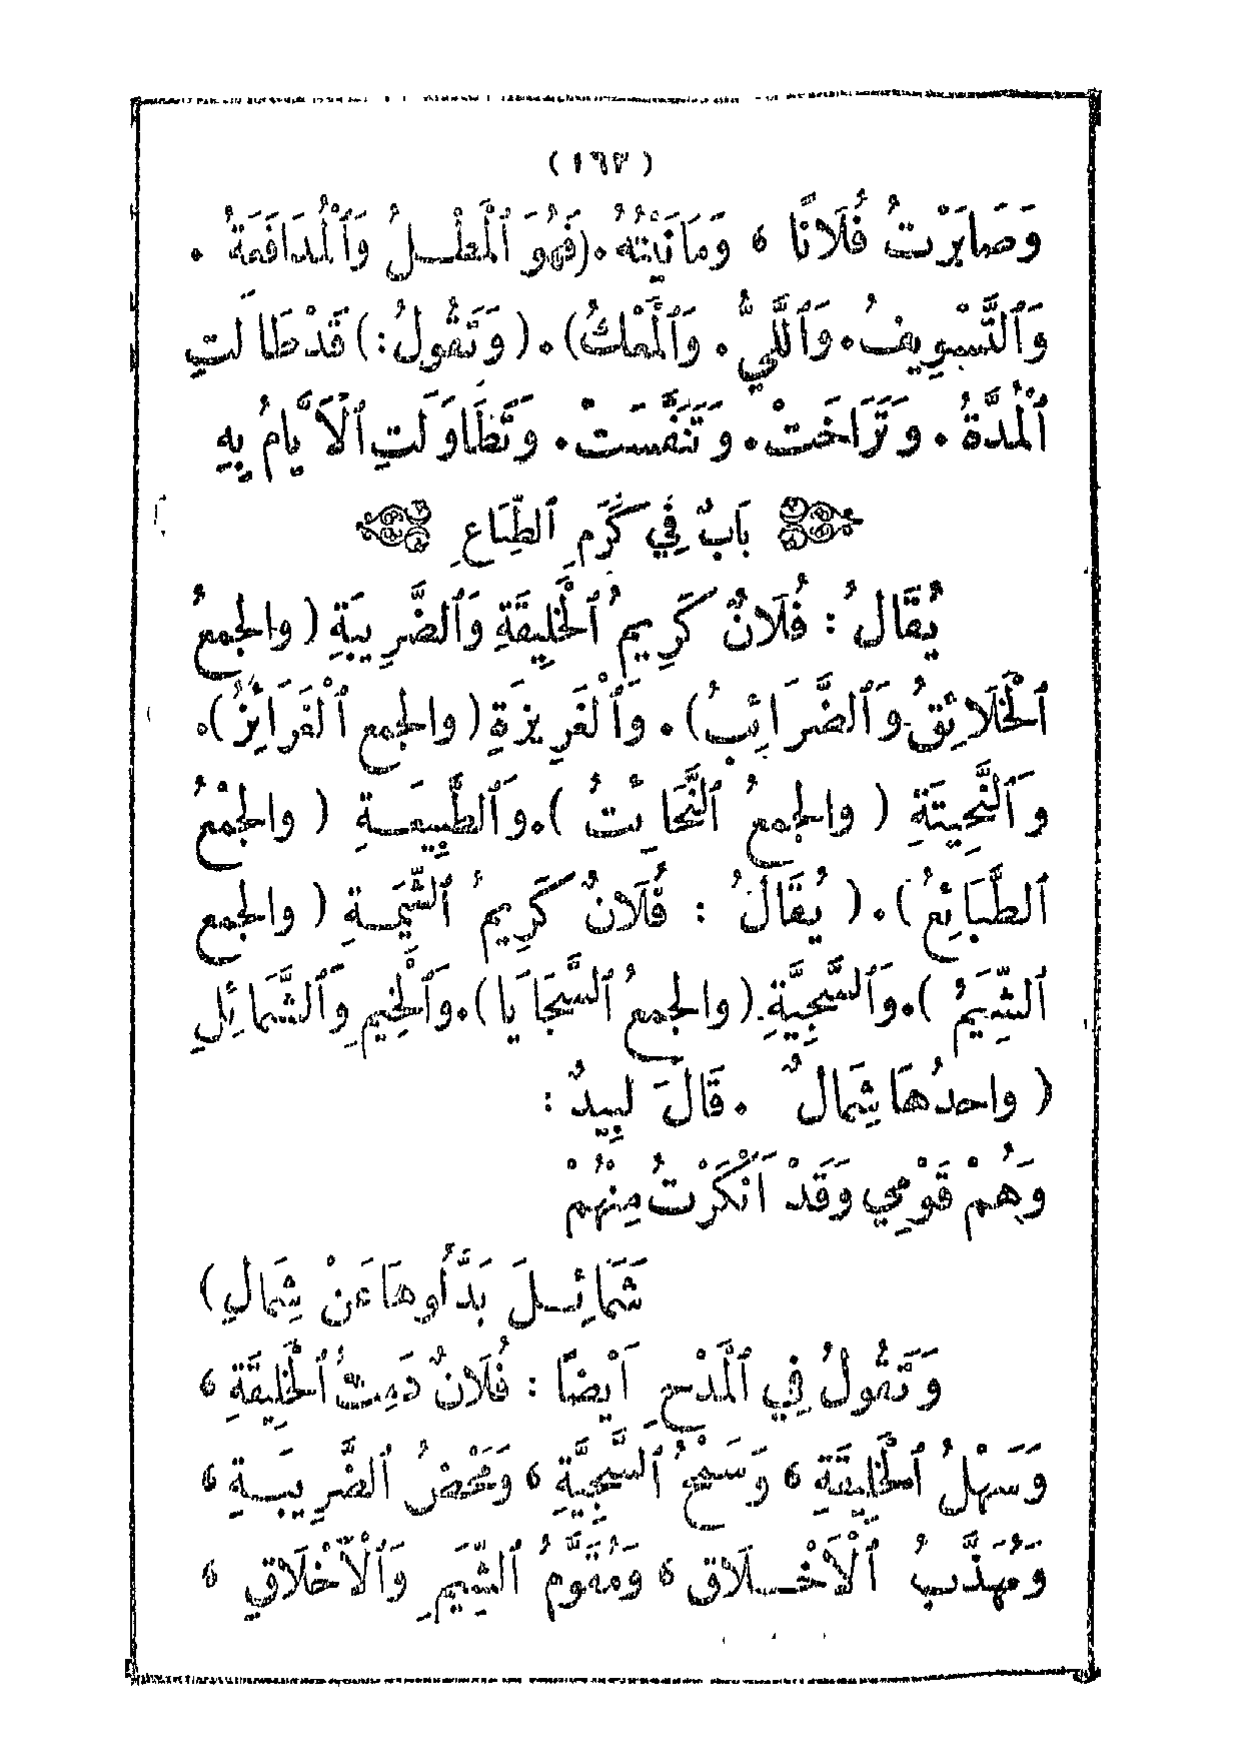 (١٦٣)
وَصَابَرْتُ فُلَانًا ، وَمَانَيْتُهُ . (فَهُوَ ٱلْمَطْلُ وَٱلْمُدَافَعَةُ .
وَٱلتَّسْوِيفُ . وَٱللَّيُّ . وَٱلْمَعْكُ) . (وَتَقُولُ :) قَدْ طَالَتِ
ٱلْمُدَّةُ . وَتَرَاخَتْ . وَتَنَفَّسَتْ . وَتَطَاوَلَتِ ٱلْأَيَّامُ بِهِ
بَابٌ فِي كَرَمِ ٱلطِّبَاعِ
يُقَالُ : فُلَانٌ كَرِيمُ ٱلْخَلِيقَةِ وَٱلضَّرِيبَةِ (والجمعُ
ٱلْخَلَائِقُ وَٱلضَّرَائِبُ) . وَٱلْغَرِيزَةِ (والجمع ٱلْغَرَائِزُ) .
وَٱلنَّحِيتَةِ (والجمعُ ٱلنَّحَائِتُ) . وَٱلطَّبِيعَةِ (والجمْعُ
ٱلطَّبَائِعُ) . (يُقَالُ : فُلَانٌ كَرِيمُ ٱلشِّيمَةِ (والجمع
ٱلشِّيَمُ) . وَٱلسَّجِيَّةِ (والجمعُ ٱلسَّجَايَا) . وَٱلْخِيمِ وَٱلشَّمَائِلِ
(واحدُهَا شِمَالٌ . قَالَ لبِيدٌ :
وَهُمْ قَوْمِي وَقَدْ اَنْكَرْتُ مِنْهُمْ
شَمَائِلَ بَدَّلُوهَا عَنْ شِمَالِ)
وَتَقُولُ فِي ٱلْمَدْحِ اَيْضًا : فُلَانٌ دَمِثُ ٱلْخَلِيقَةِ ،
وَسَهْلُ ٱلْخَلِيقَةِ ، وَسَمْحُ ٱلسَّجِيَّةِ ، وَمَحْضُ ٱلضَّرِيبَةِ ،
وَمُهَذَّبُ ٱلْأَخْلَاقِ ، وَمُقَوَّمُ ٱلشِّيَمِ وَٱلْأَخْلَاقِ ،